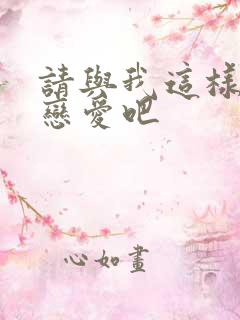 請與我這樣
戀愛吧
心如畫